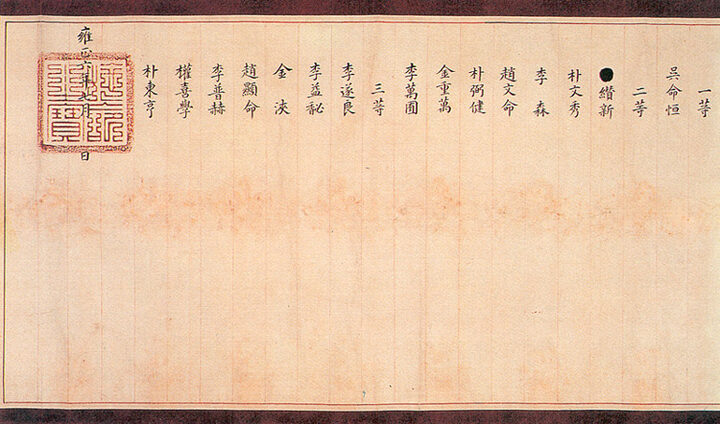 一等
吳命恒
二等
纘新
朴文秀
李森
趙文命
朴弼健
金重萬
李萬囿
三等
李遂良
李益馝
金浹
趙顯命
李普赫
權喜學
朴東亨
雍正六年 月 日